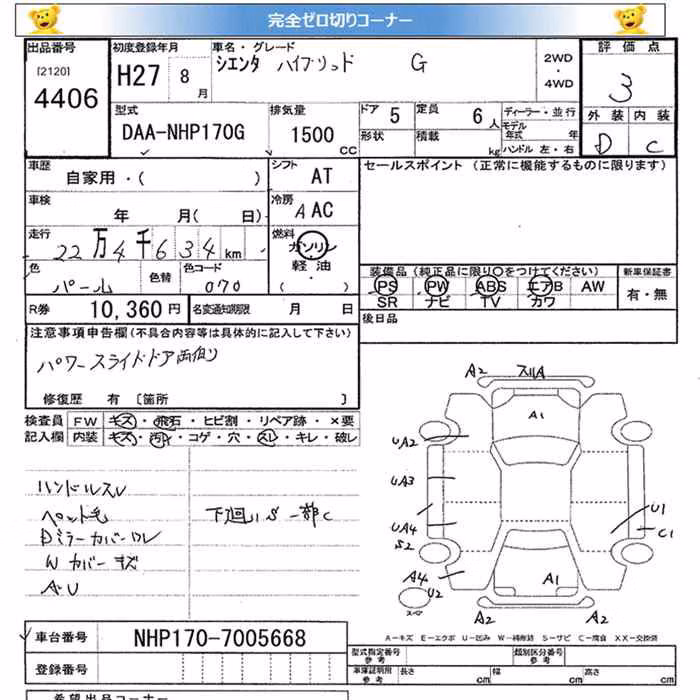 完全ゼロ切りコーナー
出品番号 初度登録年月 車名・グレード 評価点
[2120] H27 8月 シエンタ ハイブリッド G 2WD・4WD 3
4406
型式 排気量 ドア 5 定員 6人 ディーラー・並行 外装 内装
DAA-NHP170G 1500CC 形状 積載 kg モデル年式 年 D C
ハンドル 左・右
車歴 シフト セールスポイント (正常に機能するものに限ります)
自家用・( ) AT
車検 冷房
年 月( 日) A AC
走行 22万4千634km 燃料
ガソリン・
軽油・
( )
色 パール 色替 色コード 070
装備品(純正品に限り○をつけてください) 新車保証書
PS PW ABS エアB AW 有・無
SR ナビ TV カワ
R券 10,360円 名変通知期限 月 日
後日品
注意事項申告欄(不具合内容等は具体的に記入して下さい)
パワースライドドア両側
修復歴 有 〔箇所 〕
検査員 FW キズ・飛石・ヒビ割・リペア跡・×要
記入欄 内装 キズ・汚れ・コゲ・穴・スレ・キレ・破レ
ハンドルスレ
ペット毛 下廻りS一部C
Dミラーカバーワレ
Wカバーキズ
AU
A2 スリA
A1
UA2
UA3
UA4 U1
S2 C1
A4 A1
U2
スペア A2 A2
A-キズ E-エクボ U-凹み W-補修跡 S-サビ C-腐食 XX-交換済
車台番号 NHP170-7005668
型式指定番号 参考 類別区分番号 参考
登録番号 車庫証明用 参考 長さ cm 幅 cm 高さ cm
希望出品コーナー